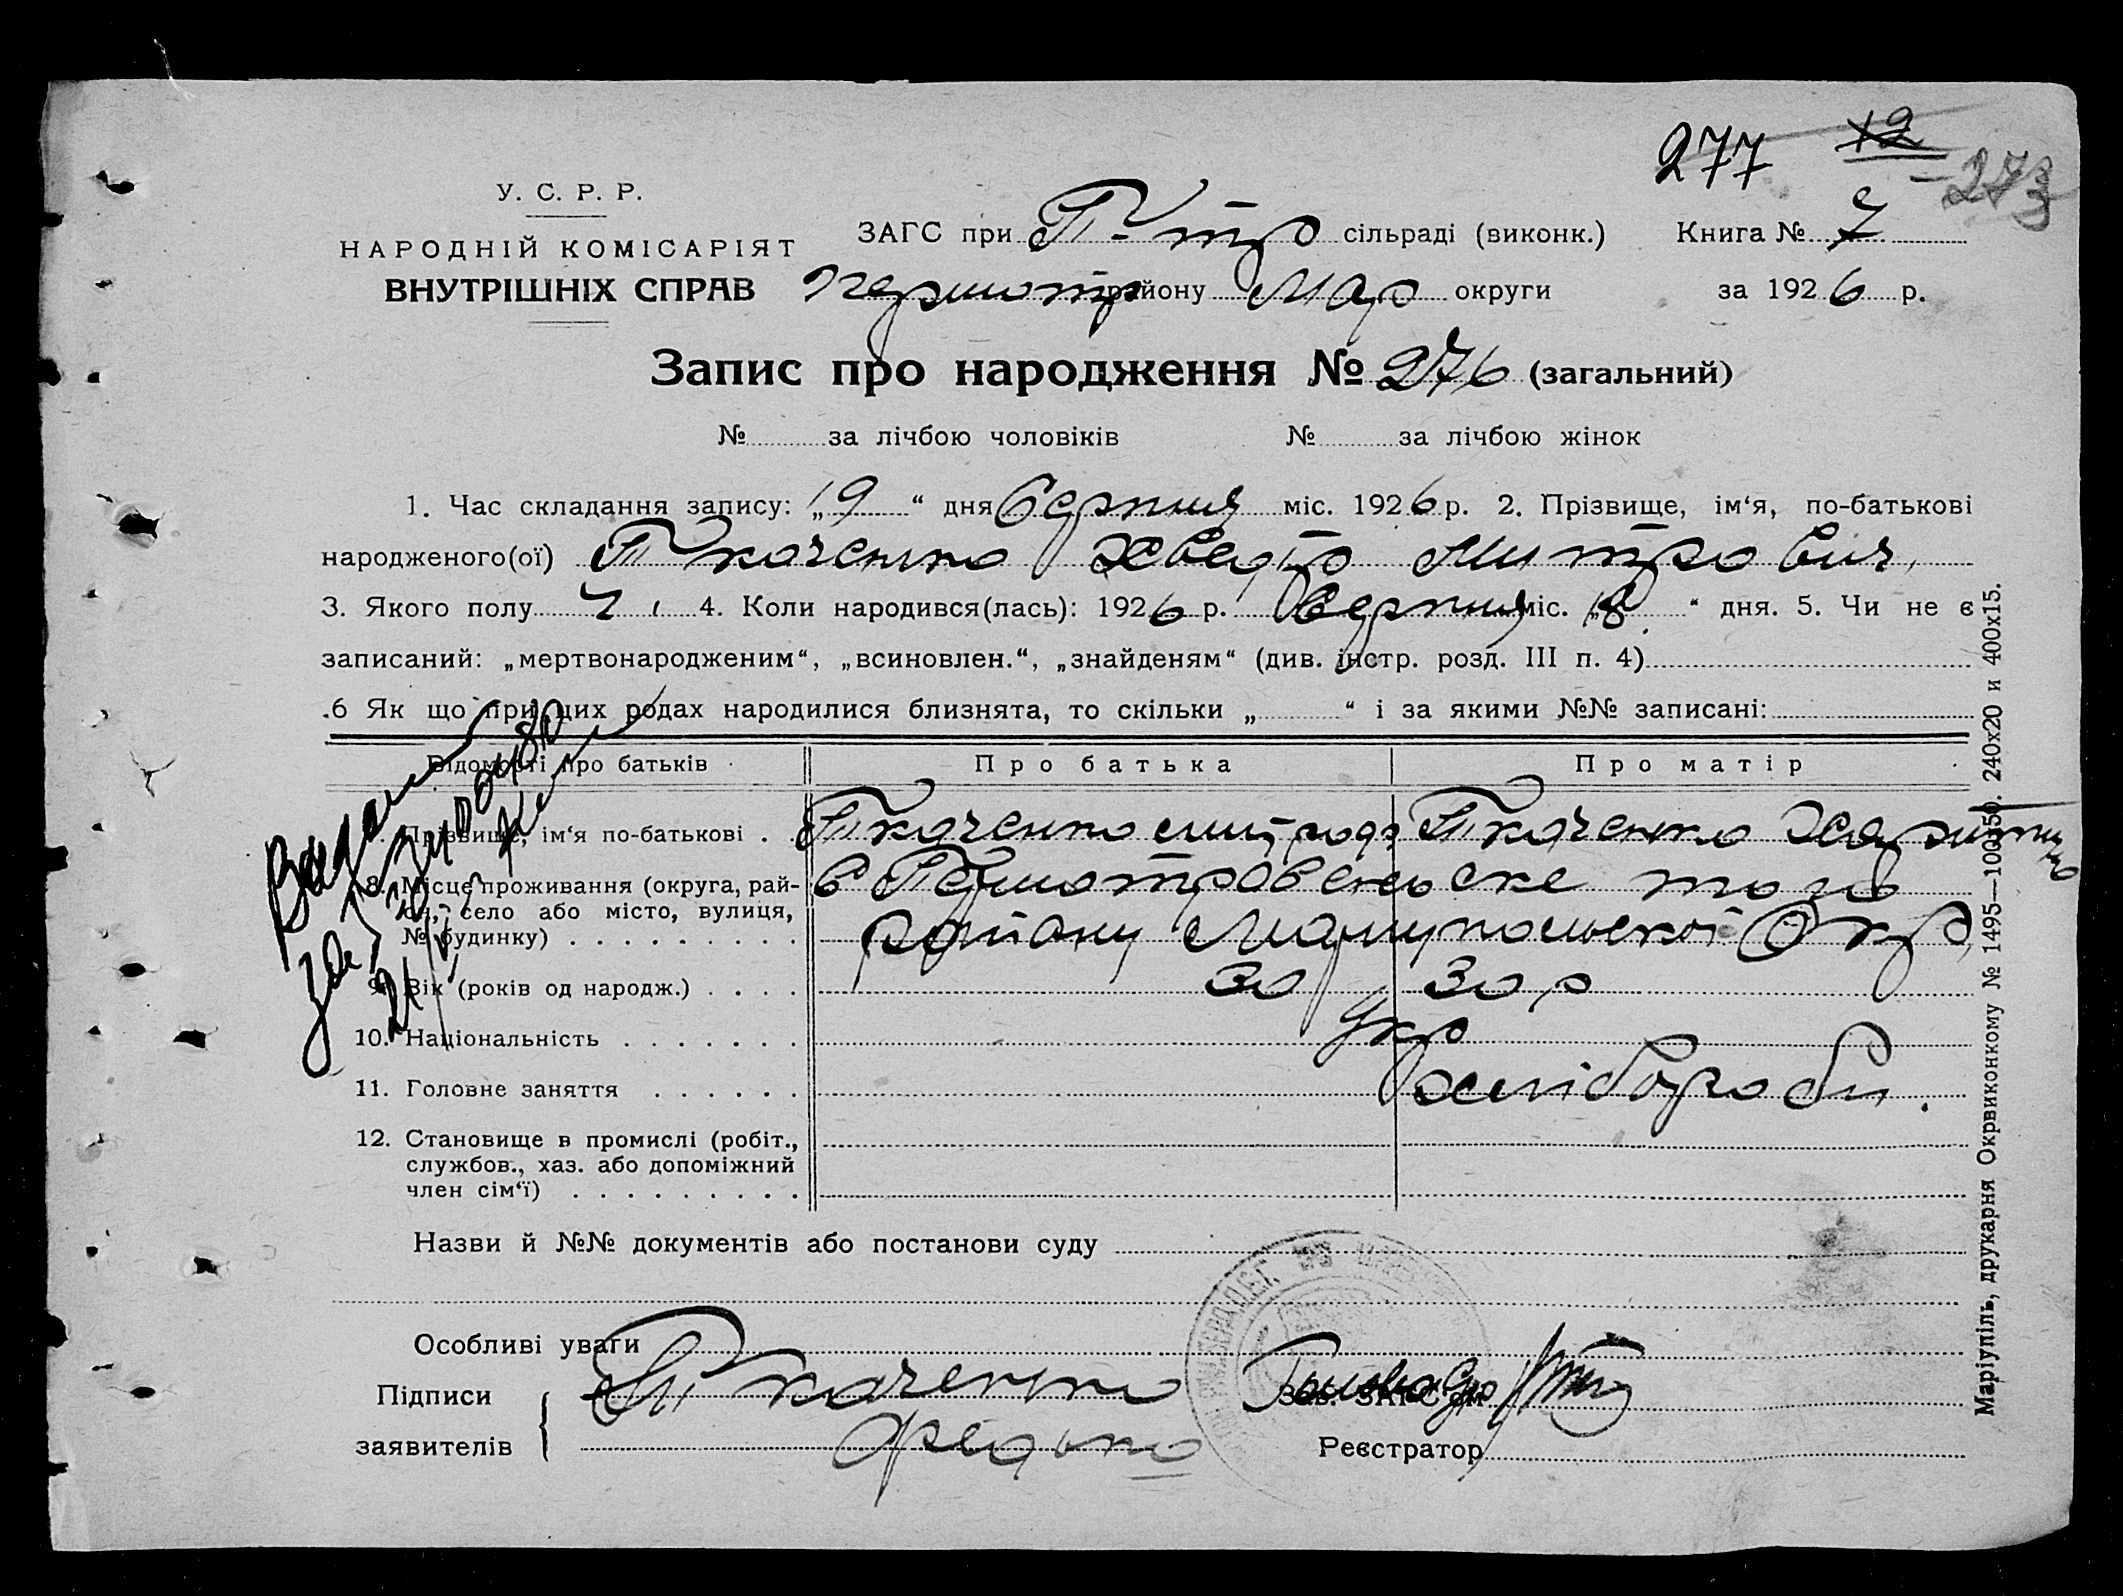 277 12 273
У. С. Р. Р.
НАРОДНІЙ КОМІСАРІЯТ
ВНУТРІШНІХ СПРАВ
ЗАГС при П-тр сільраді (виконк.) Книга № 7
Першотр району Мар округи за 1926 р.
Запис про народження № 276 (загальний)
№ за лічбою чоловіків № за лічбою жінок
1. Час складання запису: „19“ дня Серпня міс. 1926 р. 2. Прізвище, ім‘я, по-батькові
народженого(ої) Ткаченко Хведір Митрович,
3. Якого полу Ч. 4. Коли народився(лась): 1926 р. Серпня міс. „18“ дня. 5. Чи не є
записаний: „мертвонародженим“, „всиновлен.“, „знайденям“ (див. інстр. розд. III п. 4)
.6 Як що при цих родах народилися близнята, то скільки „ “ і за якими №№ записані:
Відомості про батьків Про батька Про матір
7. Прізвище, ім‘я по-батькові . Ткаченко Ткаченко
8. Місце проживання (округа, рай-
он, село або місто, вулиця,
№ будинку) . . . . . . . . .
в того ж
району Маріупольської Окр,
9. Вік (років од народж.) . . . . 30 30 р
10. Національність . . . . . . . Укр
11. Головне заняття . . . . . . Хліборобы.
12. Становище в промислі (робіт.,
службов., хаз. або допоміжний
член сім‘ї) . . . . . . . . .
Назви й №№ документів або постанови суду
Особливі уваги
Підписи
заявителів
Ткаченко
Зав. ЗАГС‘ом
Реєстратор
Маріупіль, друкарня Окрвиконкому № 1495—100х50. 240х20 и 400х15.